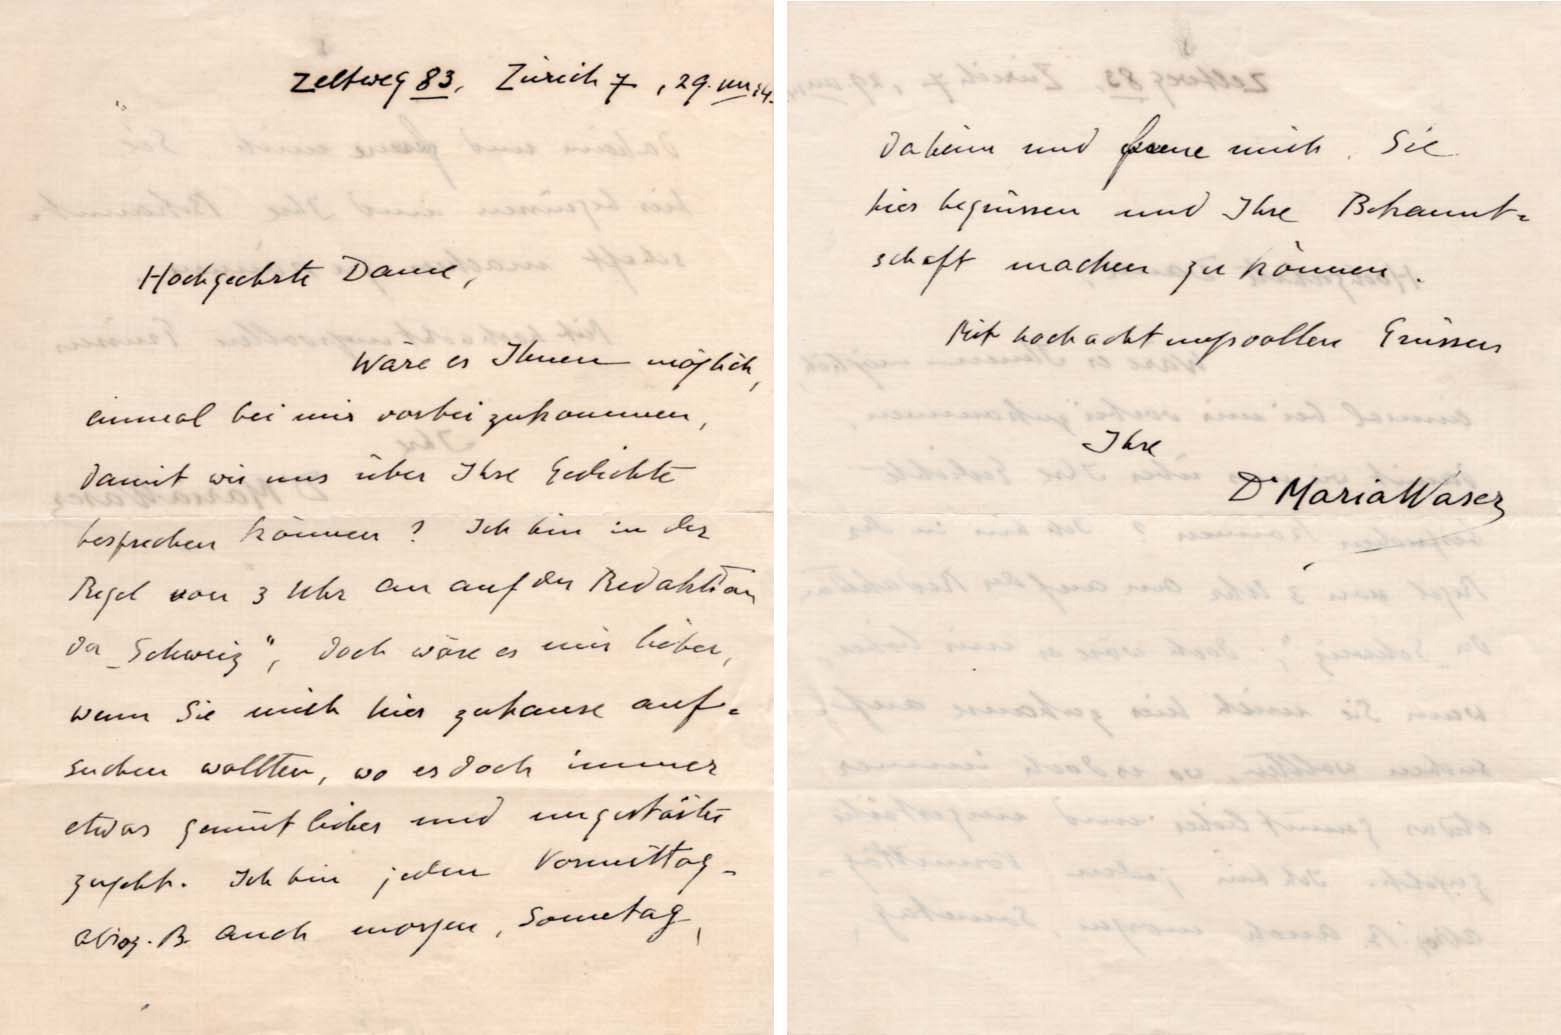 Zeltweg 83, Zürich 7, 29. VIII 14.
Hochgeehrte Dame,
Wäre es Ihnen möglich,
einmal bei mir vorbeizukommen,
damit wir uns über Ihre Gedichte
besprechen können? Ich bin in der
Regel von 3 Uhr an auf der Redaktion
der „Schweiz", doch wäre es mir lieber,
wenn Sie mich hier zuhause auf=
suchen wollten, wo es doch immer
etwas gemütlicher und ungestörter
zugeht. Ich bin jeden Vormittag -
also z. B. auch morgen, Sonntag,
daheim und freue mich, Sie
hier begrüssen und Ihre Bekannt=
schaft machen zu können.
Mit hochachtungsvollen Grüssen
Ihre
Dr Maria Waser